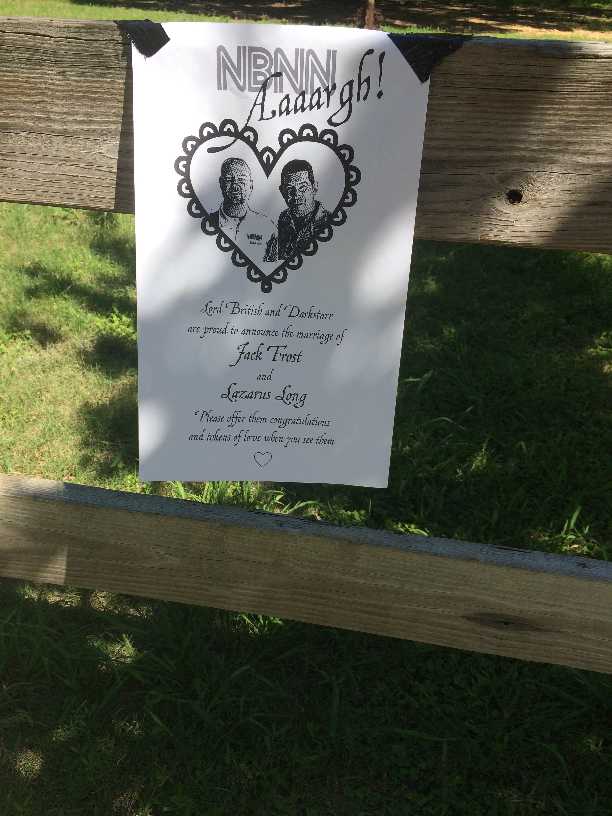 NBNN
Aaaargh!
Lord British and Darkstarr
are proud to announce the marriage of
Jack Frost
and
Lazarus Long
Please offer them congratulations
and tokens of love when you see them